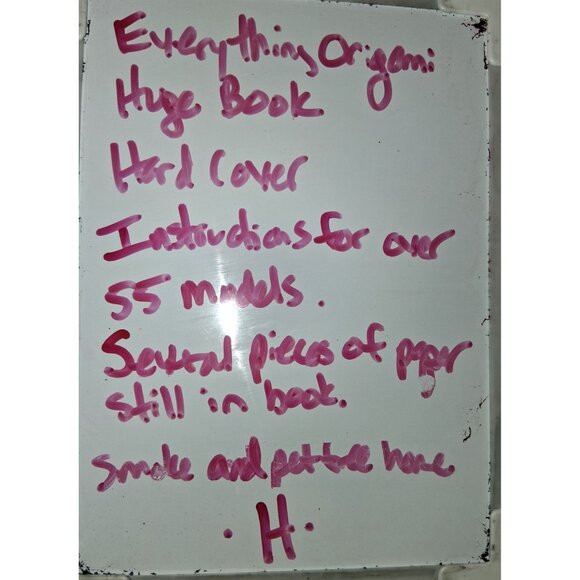 Everything Origami
Huge Book
Hard Cover
Instructions for over
55 models.
Several pieces of paper
still in book.
Smoke and pet free home
·H·